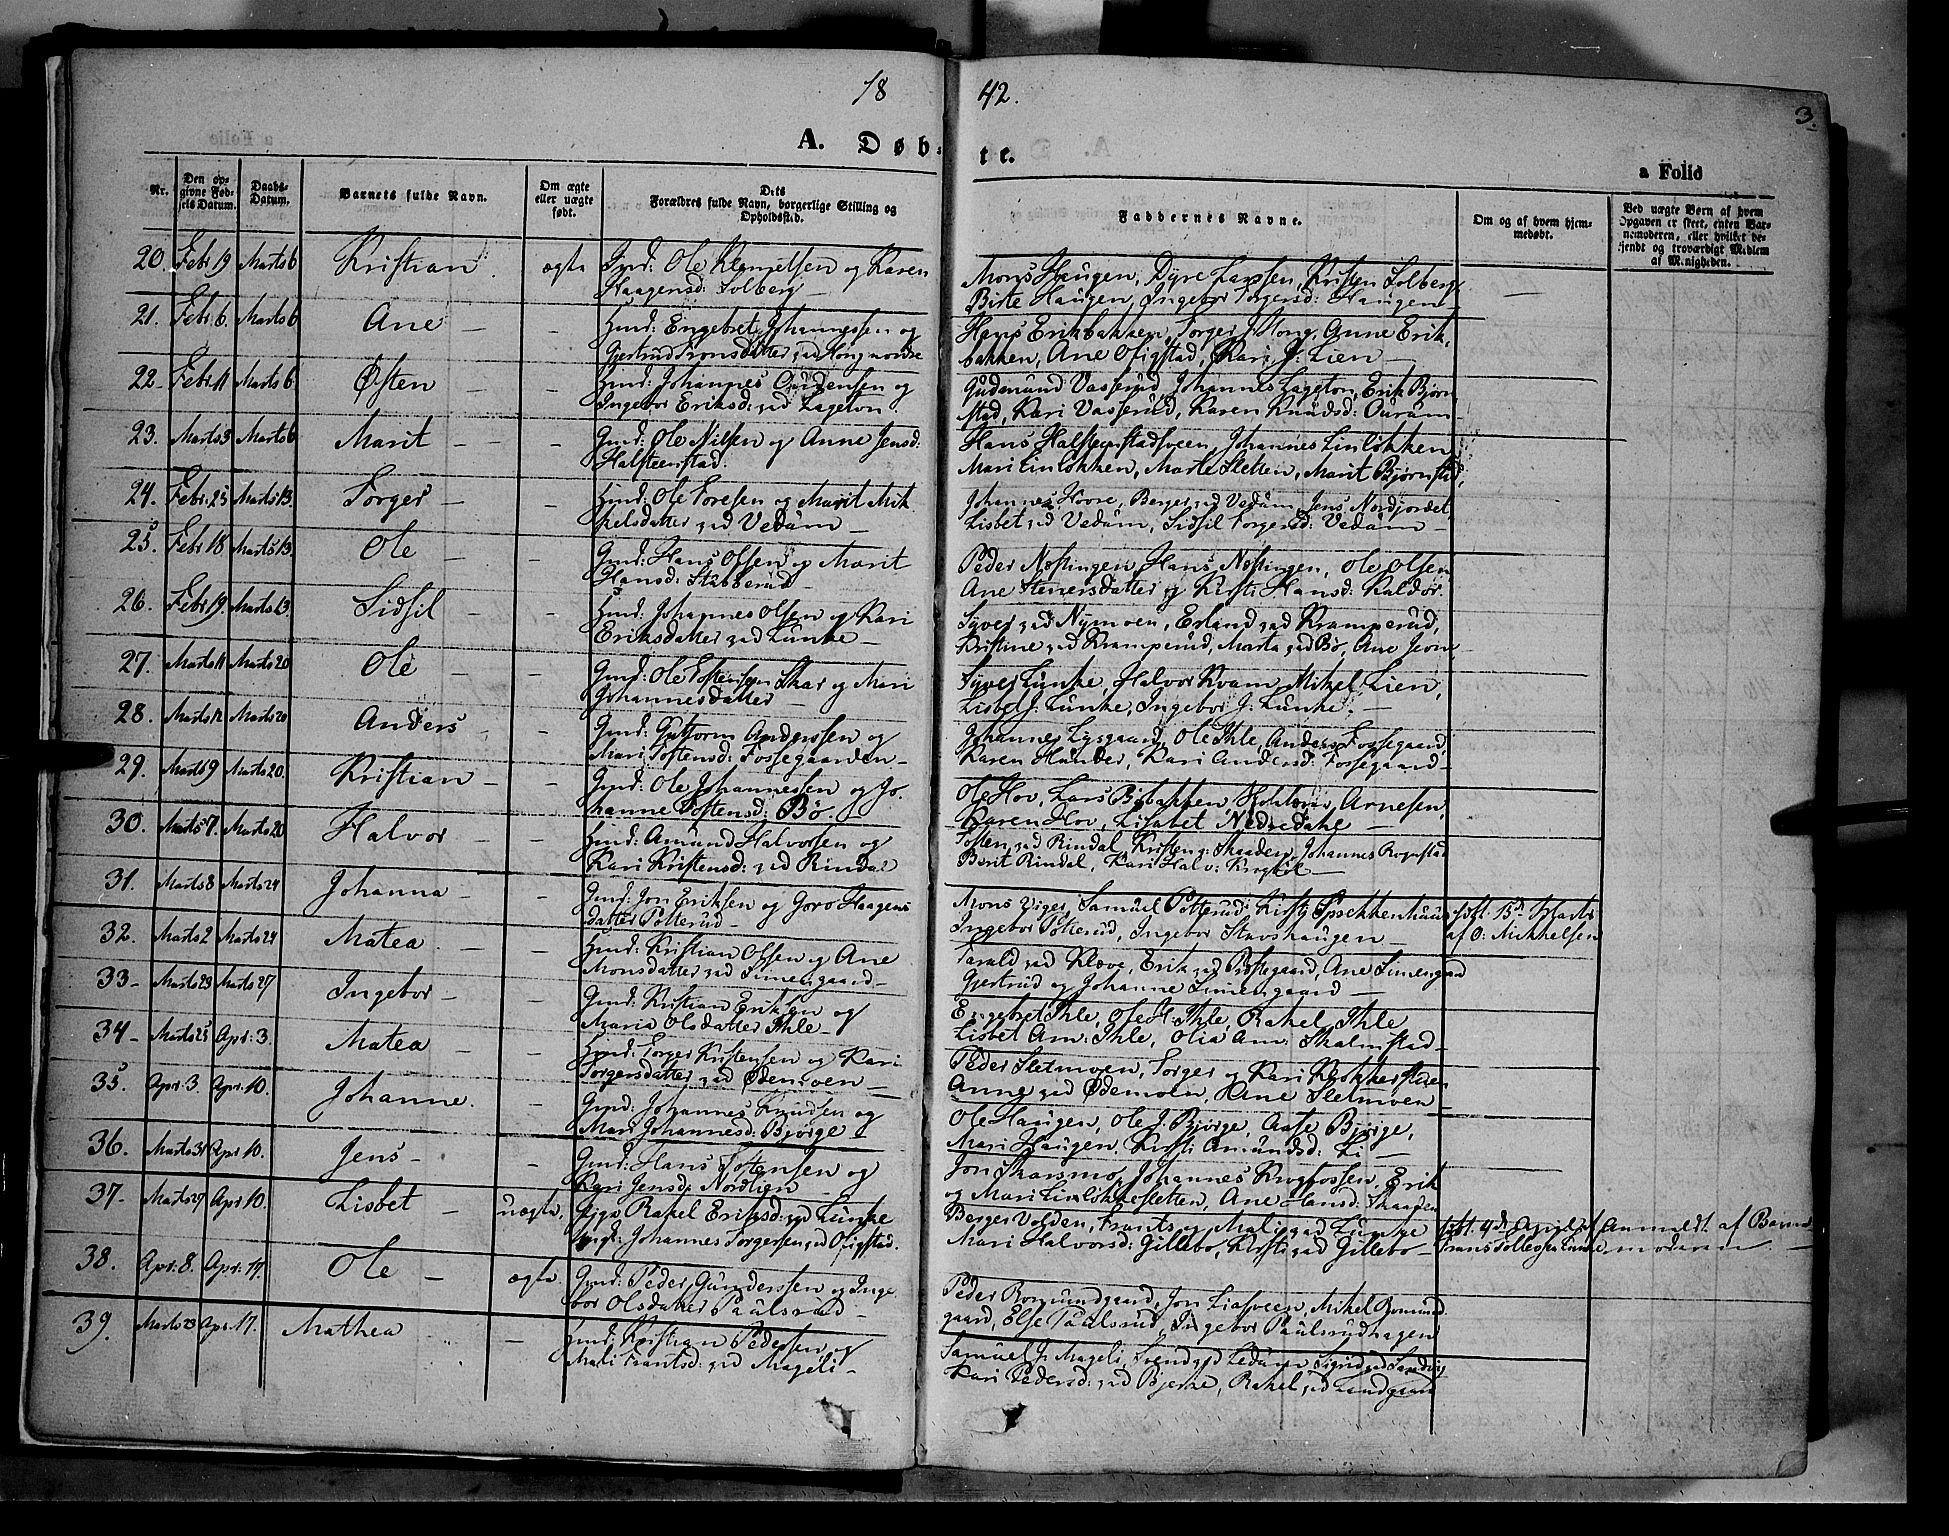 18 42.
3.
A. Døb- te.
a Folio
Nr.
Den opgivne Fødsels Datum.
Daabs-Datum.
Barnets fulde Navn.
Om ægte eller uægte født.
Dets Forældres fulde Navn, borgerlige Stilling og Opholdsted.
Faddernes Navne.
Om og af hvem hjemmedøbt.
Ved uægte Børn af hvem Opgaven er skeet, enten Barnemoderen, eller hvilket bekjendt og troværdigt Medlem af Menigheden.
20. Febr 19 Marts 6 Kristian. ægte Ind: Ole og Karen
Haagensd: Solberg —
Mons Haugen, Dyre Larsen, Kristen Solberg
Birte Haugen, Ingebor Torgersd: Haugen —
21. Febr 6. Marts 6 Ane — — Gmd: Engebret Johannessen og
Gjertrud Tronsdatter
Hans Erikbakken, Torger Anne Erik-
bakken, Ane Kari J: Lien —
22 Febr 11 Marts 6 Østen — — Ind: Johannes og
Ingebor Eriksd: Lageton.
Gudmund Vasserud, Johannes Lageton, Erik Bjørn
stad, Kari Vasserud, Karen Knudsd:
23. Marts 3 Marts 6 Marit — — Gmd: Ole Nilsen og Anne Jensd:
Halsteenstad.
Hans Halsteenstadsveen, Johannes Linløkken
Mari Linløkken, Marte Sletten, Marit Bjørnstad,
24. Febr. 25 Marts 13. Torger — — Ind: Ole Toresen og Marit Mik
kelsdatter Vedum —
Johannes Berger Vedum, Jens Nordjordet,
Lisbet Vedum, Sidsil Torgersd: Vedum —
25. Febr 18 Marts 13. Ole — — Gmd: Hans Olsen og Marit
Hansd: Stabberud
Peder Nøstingen, Hans Nøstingen, Ole Olsen
Ane Stenersdatter og Kirsti Hansd: Kaldor.
26. Febr 19. Marts 13. Sidsil — — Ind: Johannes Olsen og Kari
Eriksdatter Lunke —
Syver Nymoen, Erland Kramperud,
Kristine Kramperud, Marta Bø, Ane
27. Marts 11 Marts 20 Ole — — Gmd: Ole Tostensen Skar og Mari
Johannesdatter —
Syver Lunke, Halvor Kvam, Mikel Lien,
Lisbet J: Lunke, Ingebor J: Lunke. —
28. Marts 12 Marts 20 Anders — — Gmd: Guttorm Anderssen og
Mari Tostensd: Fossegaarden —
Johannes Lysgaard, Ole Ihle, Anders Fossegaard,
Karen Hunder, Kari Andersd: Fossegaard —
29. Marts 9 Marts 20. Kristian — — Gmd: Ole Johannessen og Jo-
hanne Tostensd: Bø.
Ole Hov, Lars Arnesen,
Karen Hov, Lisabet Nedredahe —
30. Marts 7. Marts 20 Halvor — — Ind: Amund Halvorsen og
Kari Kristensd: Rindal
Tosten Rindal, Kristen Skaaden, Johannes Rognstad
Berit Rindal, Kari Halv:
31. Marts 8 Marts 24 Johanna — — Gmd: Jon Eriksen og Goro Haagens
datter Potterud —
Mons Samuel Potterud, Kirsti
Ingebor Potterud, Ingebor Stavshaugen —
af O: Mikkelsen
32. Marts 2 Marts 24 Matea. — — Ind: Kristian Olsen og Ane
Monsdatter
Tarald Kløve, Erik Prestegaard, Ane
Gjertrud og Johanne
33 — Marts 23 Marts 27 Ingebor — — Gmd: Kristian Eriksen og
Maria Olsdatter Ihle —
Engebret Ihle, Ole H: Ihle, Rakel Ihle
Lisbet Am: Ihle, Olia Am: Skalmstad —
34 — Marts 25 Apr: 3. Matea — — Ind: Torger Kristensen og Kari
Torgersdatter Ødemoen —
Peder Sletmoen, Torger og Kari
Anne Ødemoen, Ane Sletmoen —
35. Apr: 3 Apr: 10. Johanne. — Gmd. Johannes Knudsen og
Mari Johannesd: Bjørge —
Ole Haugen, Ole J. Bjørge, Aase Bjørge,
Mari Haugen, Kirsti Amundsd: Li —
36. Marts 31 Apr 10. Jens — — Gmd: Hans Tostensen og
Kari Jensd: Nordlien —
Jon Skarsmo, Johannes Krogfossen, Erik
og Mari Linløkkesletten, Ane Hansd: Skaaden
37 — Marts 29 Apr: 10. Lisbet — uægte. Pige Rakel Eriksd: Lunke
Johannes Torgersen
Berger Volden, Frants og Mali Lunke
Mari Halvorsd: Gillebo, Kirsti Gillebo —
Anmeldt af Barne-
moderen. —
38. Apr: 8. Apr: 17. Ole — ægte. Gmd: Peder Gunderssen og Inge
bor Olsdatter Paulsrud —
Peder Bomundgaard, Jon Liesveen, Mikel Bomund
gaard, Else Paulsrud, Ingebor Paulsrudhagen
39. Marts 23 Apr. 17. Mathea — Ind: Kristian Pedersen og
Mali Frantsd: Mageli —
Samuel J. Mageli, Svend Sigrid
Kari Pedersd: Bjerke, Rakel